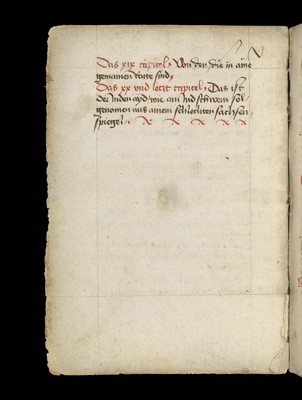 Das xix capitel, Von den die in aine
gemainen
Das xx vnd letzt capitel, Das ist
der Juden ayd, wie ain Jud schweren sol
genomen aus ainem schlechten sachsen
spiegel.